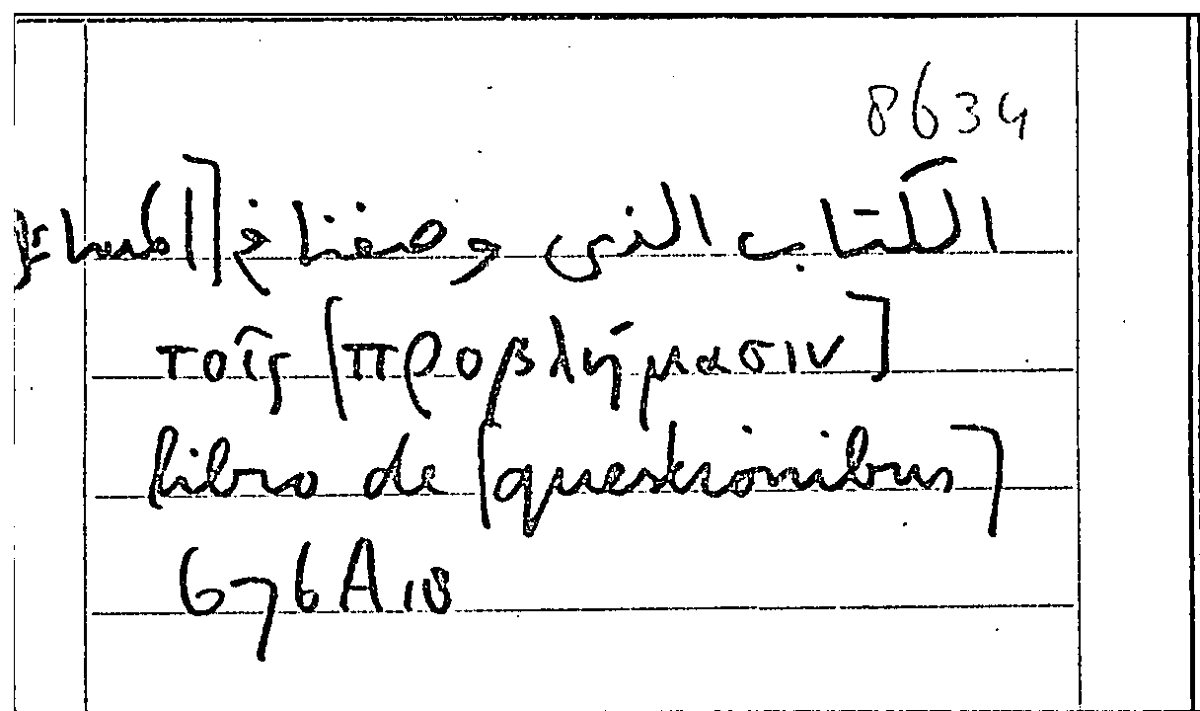 8634
الكتاب الذى وصفنا فى [المسائل
τοῖς [προβλήμασιν]
libro de [questionibus]
676A18